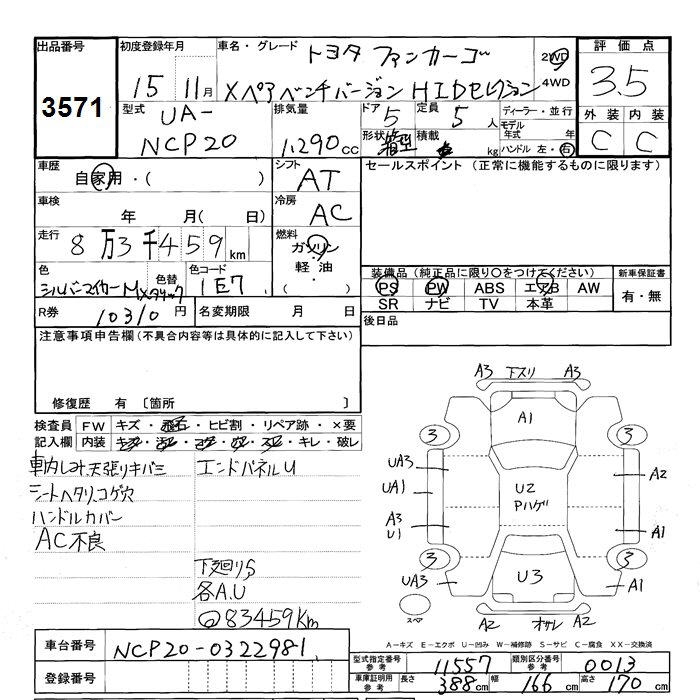 出品番号
3571
初度登録年月
15 11月
車名・グレード
トヨタ ファンカーゴ
Xペアベンチバージョン HIDセレクション
2WD
4WD
評価点
3.5
外装 内装
C C
型式
UA-
NCP20
排気量
1,290cc
ドア 5
定員 5人
形状 箱型
積載 kg
ディーラー・並行
モデル年式 年
ハンドル 左・右
車歴
自家用・( )
シフト
AT
セールスポイント (正常に機能するものに限ります)
車検
年 月( 日)
冷房
AC
走行
8万3千459km
燃料
ガソリン
軽油
・
色
シルバーマイカーM
色替
色コード
1E7
装備品 (純正品に限り○をつけてください)
PS PW ABS エアB AW
SR ナビ TV 本革
新車保証書
有・無
R券 10310円
名変期限 月 日
後日品
注意事項申告欄(不具合内容等は具体的に記入して下さい)
修復歴 有 〔箇所 〕
検査員記入欄
FW キズ・飛石・ヒビ割・リペア跡・×要
内装 キズ・汚レ・コゲ・穴・スレ・キレ・破レ
車内しみ天張りキバミ
シートヘタリ、コゲ穴
ハンドルカバー
AC不良
エンドパネルU
下廻りS
各A.U
83459Km
A3 下スリ A3
A1
3 3
UA3
UA1
A3
U1
U2
Pハゲ
A2
A1
3 3
UA3
U3
A1
スペア
A2 オサレ A2
A-キズ E-エクボ U-凹み W-補修跡 S-サビ C-腐食 XX-交換済
車台番号
NCP20-0322981
登録番号
型式指定番号 参考
11557
類別区分番号 参考
0013
車庫証明用 参考
長さ 388cm
幅 166cm
高さ 170cm